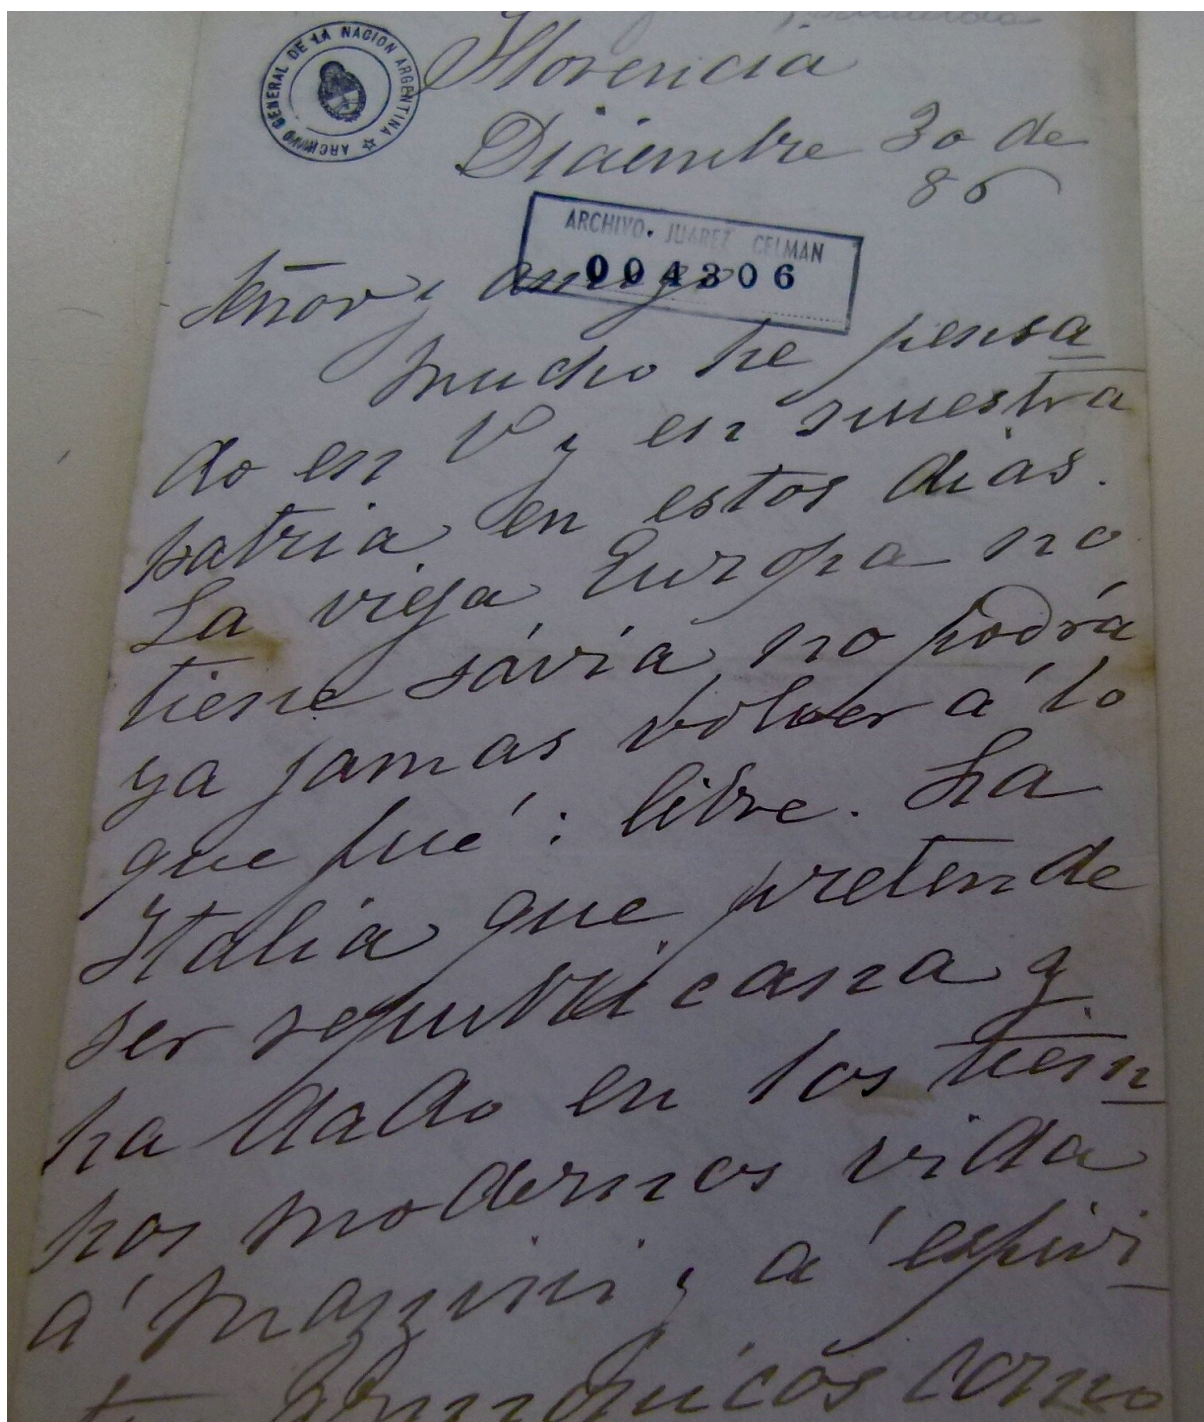 ARCHIVO GENERAL DE LA NACION ARGENTINA
Florencia
Diciembre 30 de
86
ARCHIVO. JUAREZ CELMAN
004306
Señor y amigo
Mucho he pensa
do en V y en nuestra
patria en estos dias.
La vieja Europa no
tiene sávia, no podrá
ya jamas volver á lo
que fué: libre. La
Italia que pretende
ser republicana y
ha dado en los tiem
pos modernos vida
á Mazzini, á espiri
como